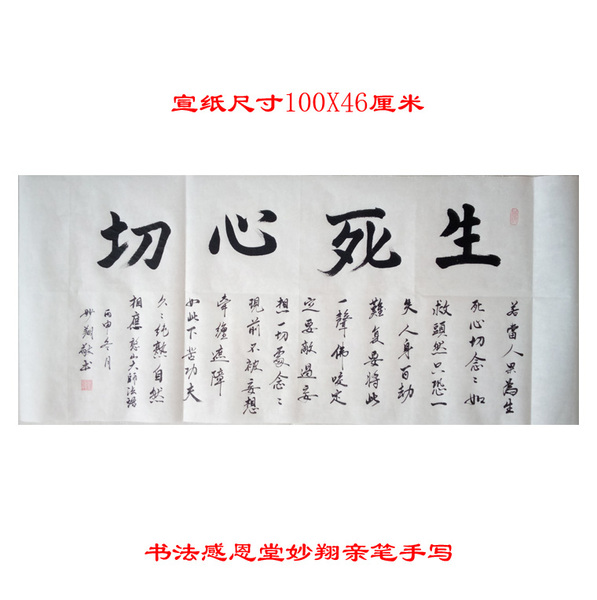 宣纸尺寸100X46厘米
生死心切
若當人果為生
死心切念〻如
救頭然只恐一
失人身百劫
難復要將此
一聲佛咬定
定要敵過妄
想一切處念〻
現前不被妄想
牽纏遮障
如此下苦功夫
久〻純熟自然
相應 憨山大師法語
丙申冬月
妙翔敬书
书法感恩堂妙翔亲笔手写